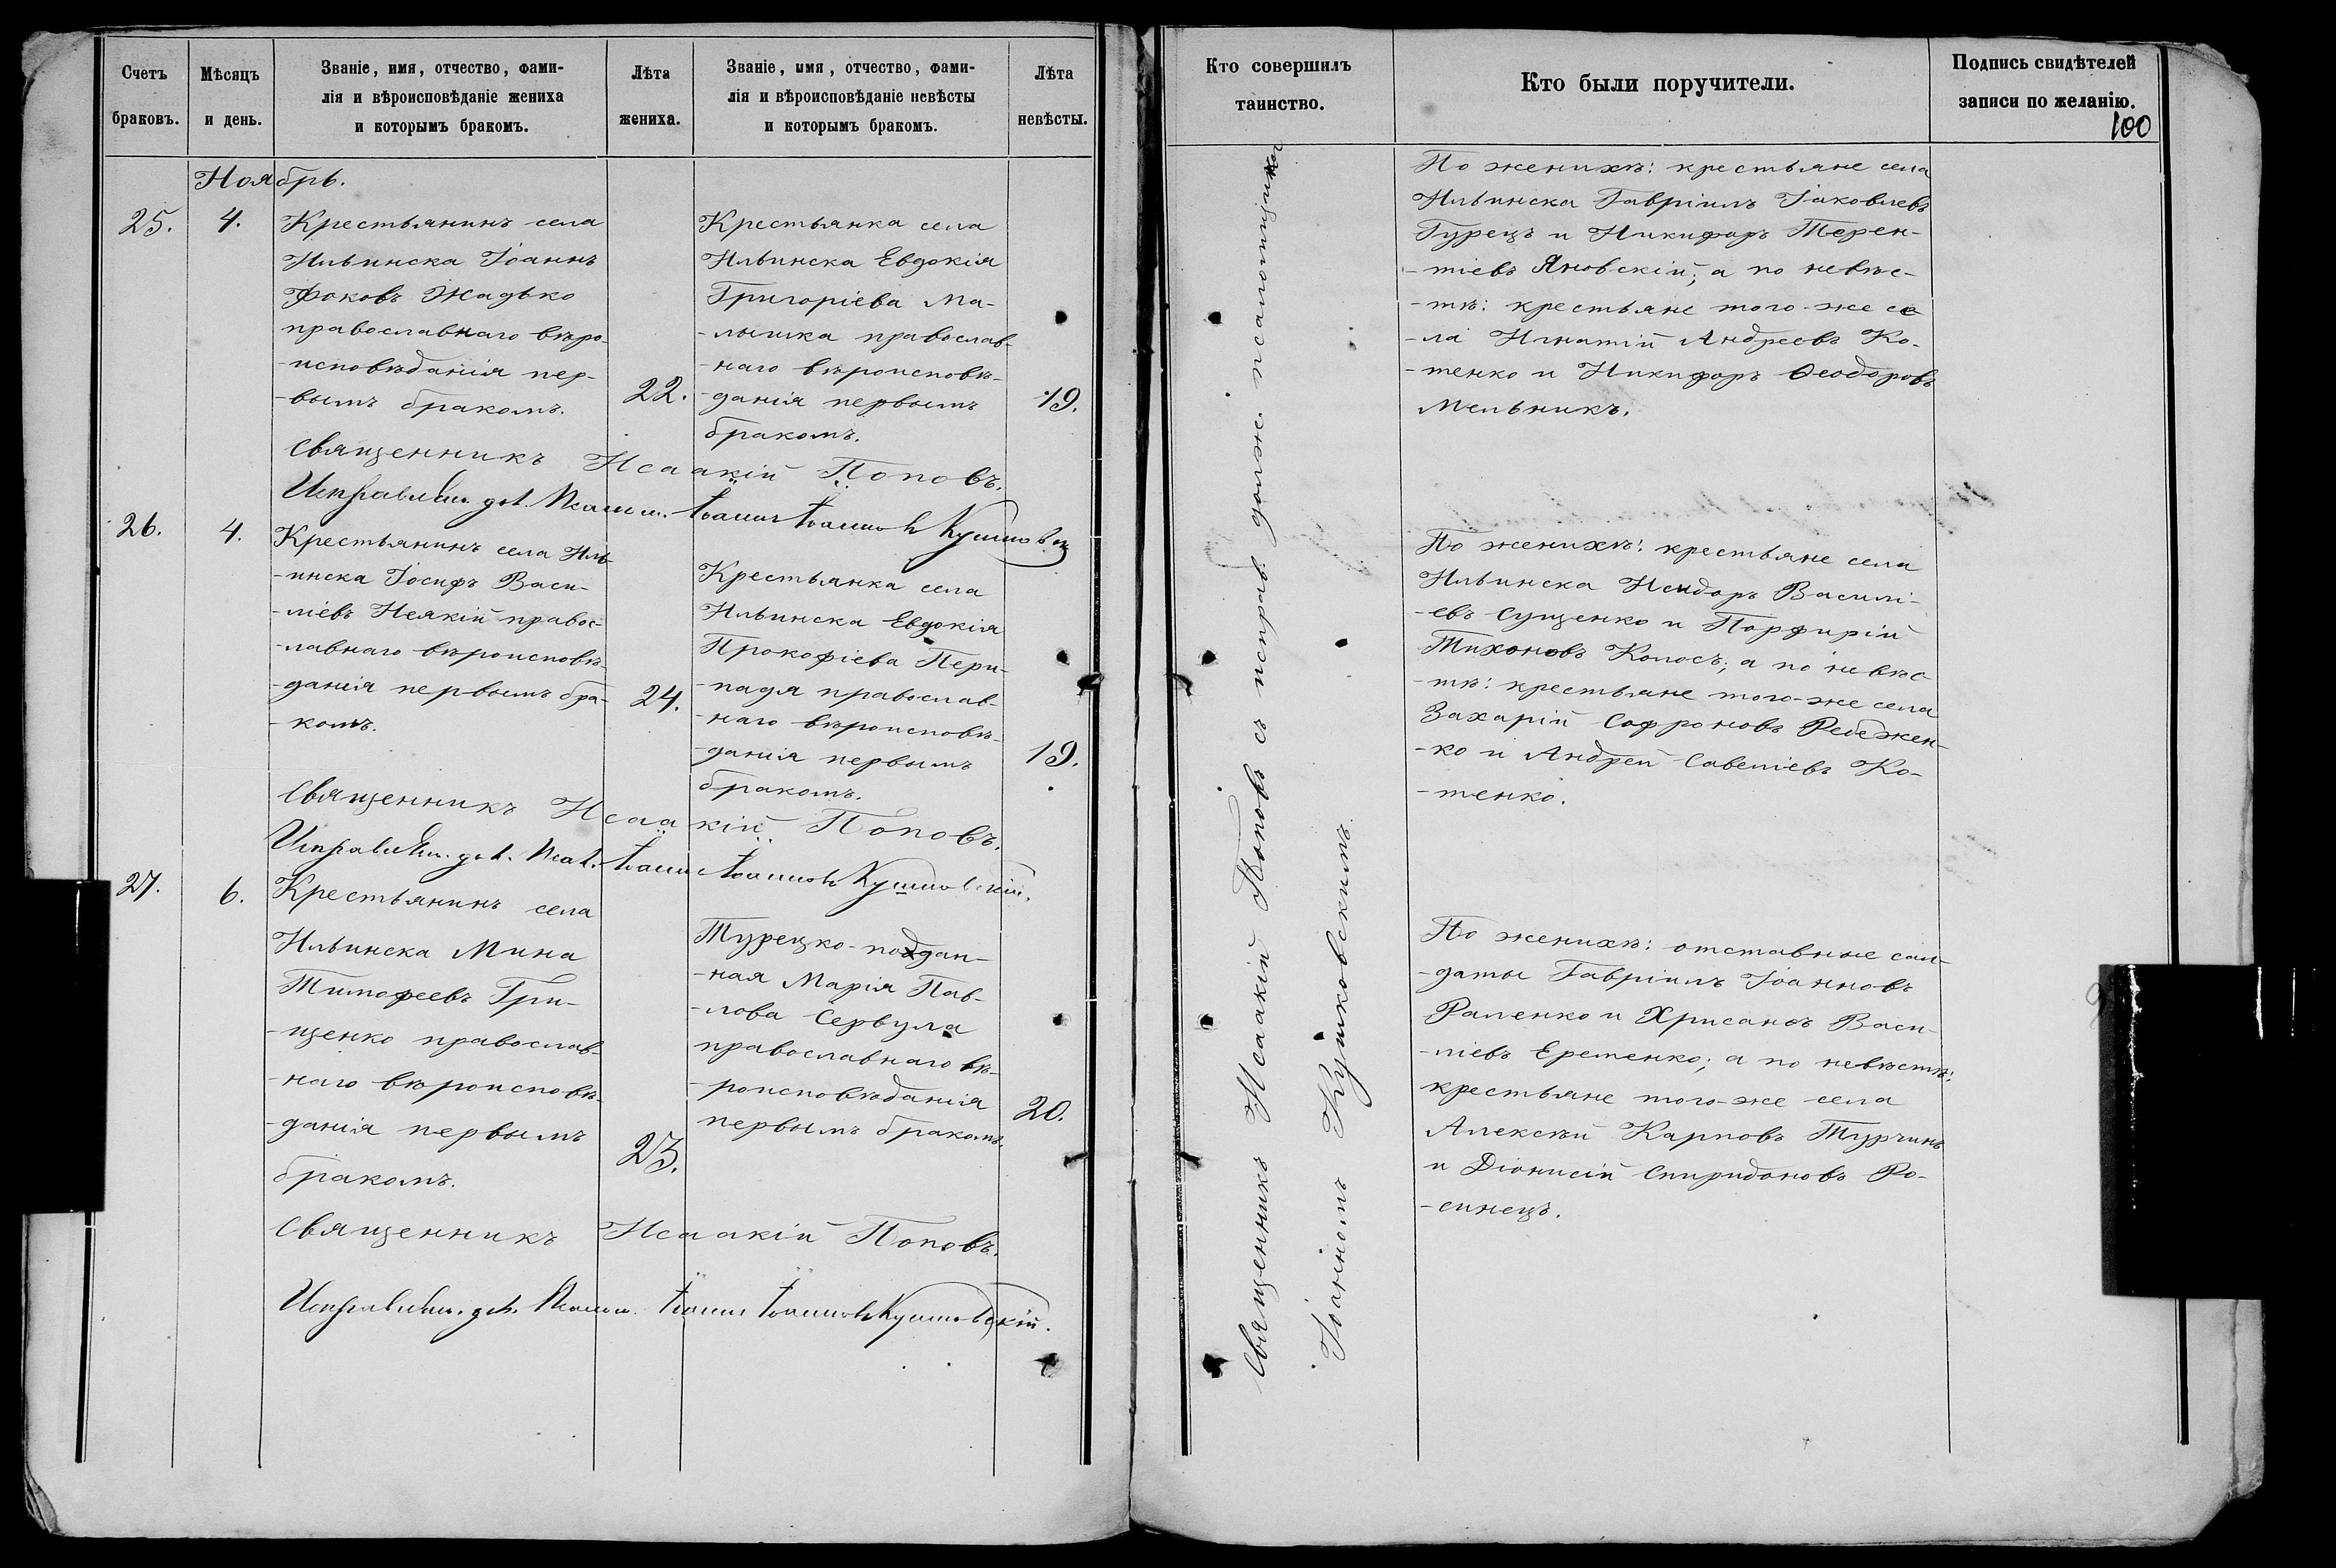 Счетъ
браковъ.
Мѣсяцъ
и день.
Званіе, имя, отчество, фами-
лія и вѣроисповѣданіе жениха
и которымъ бракомъ.
Лѣта
жениха.
Званіе, имя, отчество, фами-
лія и вѣроисповѣданіе невѣсты
и которымъ бракомъ.
Лѣта
невѣсты.
Ноябрь.
25.
4.
Крестьянинъ села
Ильинска Іоаннъ
Фоковъ Жадько
православнаго вѣро-
-исповѣданія пер-
-вымъ бракомъ.
22.
Крестьянка села
Ильинска Евдокія
Григоріева Ма-
-лышка православ-
-наго вѣроисповѣ-
-данія первымъ
бракомъ.
19.
Священникъ Исаакій Поповъ.
Исправляющ. дол. Псалом. Іоаннъ Іоанновъ Кушковск
26.
4.
Крестьянинъ села Иль-
-инска Іосифъ Васи-
-ліевъ Неякій правос-
-лавнаго вѣроисповѣ-
-данія первымъ бра-
-комъ.
24.
Крестьянка села
Ильинска Евдокія
Прокофіева Пери-
-падя православ-
-наго вѣроисповѣ-
-данія первымъ
бракомъ.
19.
Священникъ Исаакій Поповъ.
Исправляющ. дол. Псал. Іоаннъ Іоанновъ Кушковскій.
27.
6.
Крестьянинъ села
Ильинска Мина
Тимофеевъ Гри-
-щенко православ-
-наго вѣроисповѣ-
-данія первымъ
бракомъ.
23.
Турецко-поддан-
-ная Марія Пав-
-лова Сервула
православнаго вѣ-
-роисповѣданія
первымъ бракомъ.
20.
Священникъ Исаакій Поповъ.
Исправляющ. дол. Псалом. Іоаннъ Іоанновъ Кушковскій.
Кто совершилъ
таинство.
Кто были поручители.
Подпись свидѣтелей
записи по желанію.
100
Священникъ Исаакій Поповъ съ исправ. долж. псаломщика
Іоанномъ Кушковскимъ.
По женихѣ: крестьяне села
Ильинска Гавріилъ Іаковлевъ
Гурецъ и Никифоръ Терен-
-тіевъ Яновскій; а по невѣс-
-тѣ: крестьяне того-же се
-ла Игнатій Андреевъ Ко-
-тенко и Никифоръ Ѳеодоровъ
Мельникъ.
По женихѣ: крестьяне села
Ильинска Исидоръ Василі-
-евъ Сущенко и Порфирій
Тихоновъ Колосъ; а по невѣс-
-тѣ: крестьяне того-же села
Захарій Софроновъ Ребежен-
-ко и Андрей Савеліевъ Ко-
-тенко.
По женихѣ: отставные сол-
-даты Гавріилъ Іоанновъ
Раленко и Хрисанѳъ Васи-
-ліевъ Еременко; а по невѣстѣ:
крестьяне того-же села
Алексѣй Карповъ Турчинъ
и Діонисій Спиридоновъ Ро-
-синецъ.